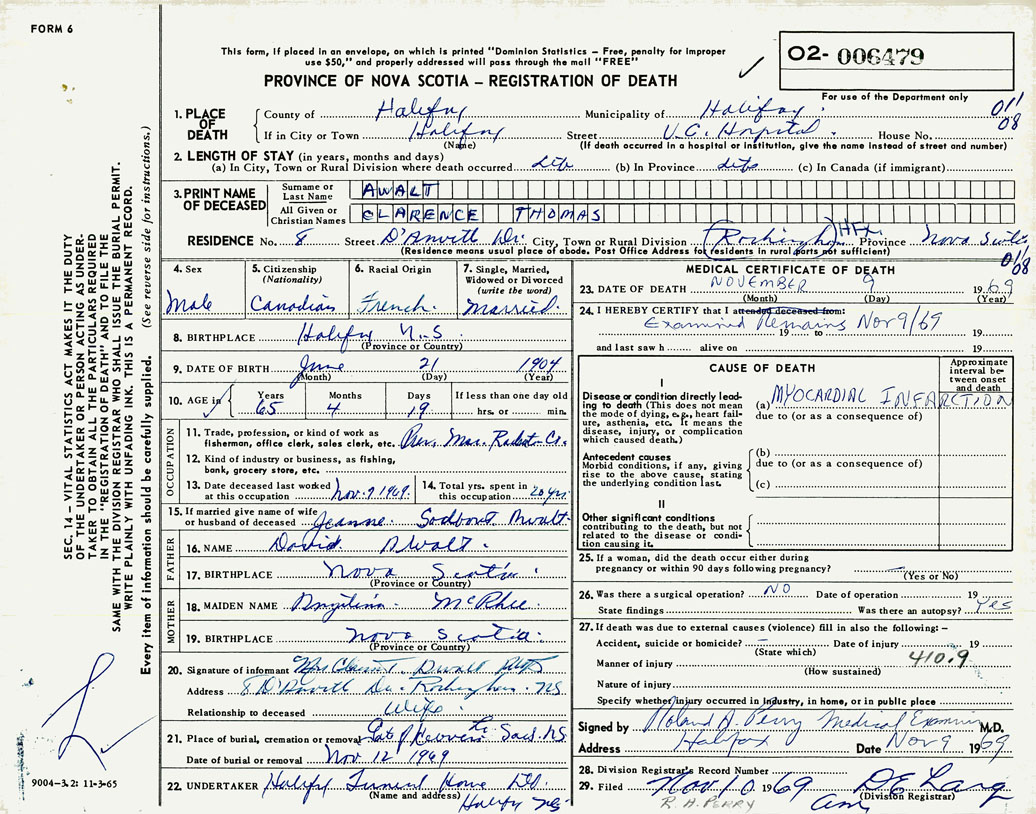 FORM 6
This form, if placed in an envelope, on which is printed "Dominion Statistics – Free, penalty for improper
use $50," and properly addressed will pass through the mail "FREE"
PROVINCE OF NOVA SCOTIA – REGISTRATION OF DEATH
✓
O2- 006479
For use of the Department only
011/08
1. PLACE OF DEATH
County of Halifax Municipality of Halifax
If in City or Town Halifax Street V.G. Hospital. House No.
(Name) (If death occurred in a hospital or institution, give the name instead of street and number)
2. LENGTH OF STAY (in years, months and days)
(a) In City, Town or Rural Division where death occurred life (b) In Province life (c) In Canada (if immigrant)
3. PRINT NAME OF DECEASED
Surname or Last Name AWALT
All Given or Christian Names CLARENCE THOMAS
RESIDENCE No. 8 Street Dr. City, Town or Rural Division Rockingham HFX Province Nova Scotia
(Residence means usual place of abode. Post Office Address for residents in rural parts not sufficient)
011/08
4. Sex
Male
5. Citizenship
(Nationality)
Canadian
6. Racial Origin
French.
7. Single, Married, Widowed or Divorced
(write the word)
Married.
8. BIRTHPLACE Halifax N.S
(Province or Country)
9. DATE OF BIRTH June 21 1904
(Month) (Day) (Year)
10. AGE in ✓
Years 65
Months 4
Days 19
If less than one day old
hrs. or min.
OCCUPATION
11. Trade, profession, or kind of work as
fisherman, office clerk, sales clerk, etc.
12. Kind of industry or business, as fishing,
bank, grocery store, etc.
13. Date deceased last worked
at this occupation Nov. 9 1969.
14. Total yrs. spent in
this occupation 20 yrs.
15. If married give name of wife
or husband of deceased Jeanne Awalt.
FATHER
16. NAME David Awalt.
17. BIRTHPLACE Nova Scotia.
(Province or Country)
MOTHER
18. MAIDEN NAME Angelina McPhee.
19. BIRTHPLACE Nova Scotia.
(Province or Country)
20. Signature of informant Mrs Awalt
Address 8 Dr. Rockingham. NS
Relationship to deceased Wife.
21. Place of burial, cremation or removal Gate of Heaven Lr. Sack. NS
Date of burial or removal Nov 12 1969
22. UNDERTAKER Halifax Funeral Home Ltd.
(Name and address) Halifax NS
MEDICAL CERTIFICATE OF DEATH
23. DATE OF DEATH NOVEMBER 9 1969
(Month) (Day) (Year)
24. I HEREBY CERTIFY that I attended deceased from:
Examined Remains Nov 9/69
19 to 19
and last saw h alive on 19
CAUSE OF DEATH
Approximate interval between onset and death
I
Disease or condition directly leading to death (This does not mean the mode of dying, e.g., heart failure, asthenia, etc. It means the disease, injury, or complication which caused death.)
(a) MYOCARDIAL INFARCTION
due to (or as a consequence of)
Antecedent causes
Morbid conditions, if any, giving rise to the above cause, stating the underlying condition last.
(b)
due to (or as a consequence of)
(c)
II
Other significant conditions
contributing to the death, but not related to the disease or condition causing it.
25. If a woman, did the death occur either during
pregnancy or within 90 days following pregnancy? –
(Yes or No)
26. Was there a surgical operation? NO Date of operation 19
State findings Was there an autopsy? Yes
27. If death was due to external causes (violence) fill in also the following:–
Accident, suicide or homicide? – Date of injury 19
(State which)
Manner of injury 410.9
(How sustained)
Nature of injury
Specify whether injury occurred in industry, in home, or in public place
Signed by Roland A. Perry Medical Examiner M.D.
Address Halifax Date Nov 9 1969
28. Division Registrar's Record Number
29. Filed Nov 10 1969
R. A. PERRY
(Division Registrar)
SEC. 14 – VITAL STATISTICS ACT MAKES IT THE DUTY
OF THE UNDERTAKER OR PERSON ACTING AS UNDER-
TAKER TO OBTAIN ALL THE PARTICULARS REQUIRED
IN THE "REGISTRATION OF DEATH" AND TO FILE THE
SAME WITH THE DIVISION REGISTRAR WHO SHALL ISSUE THE BURIAL PERMIT.
WRITE PLAINLY WITH UNFADING INK. THIS IS A PERMANENT RECORD.
Every item of information should be carefully supplied. (See reverse side for instructions.)
9004-3.2: 11-3-65